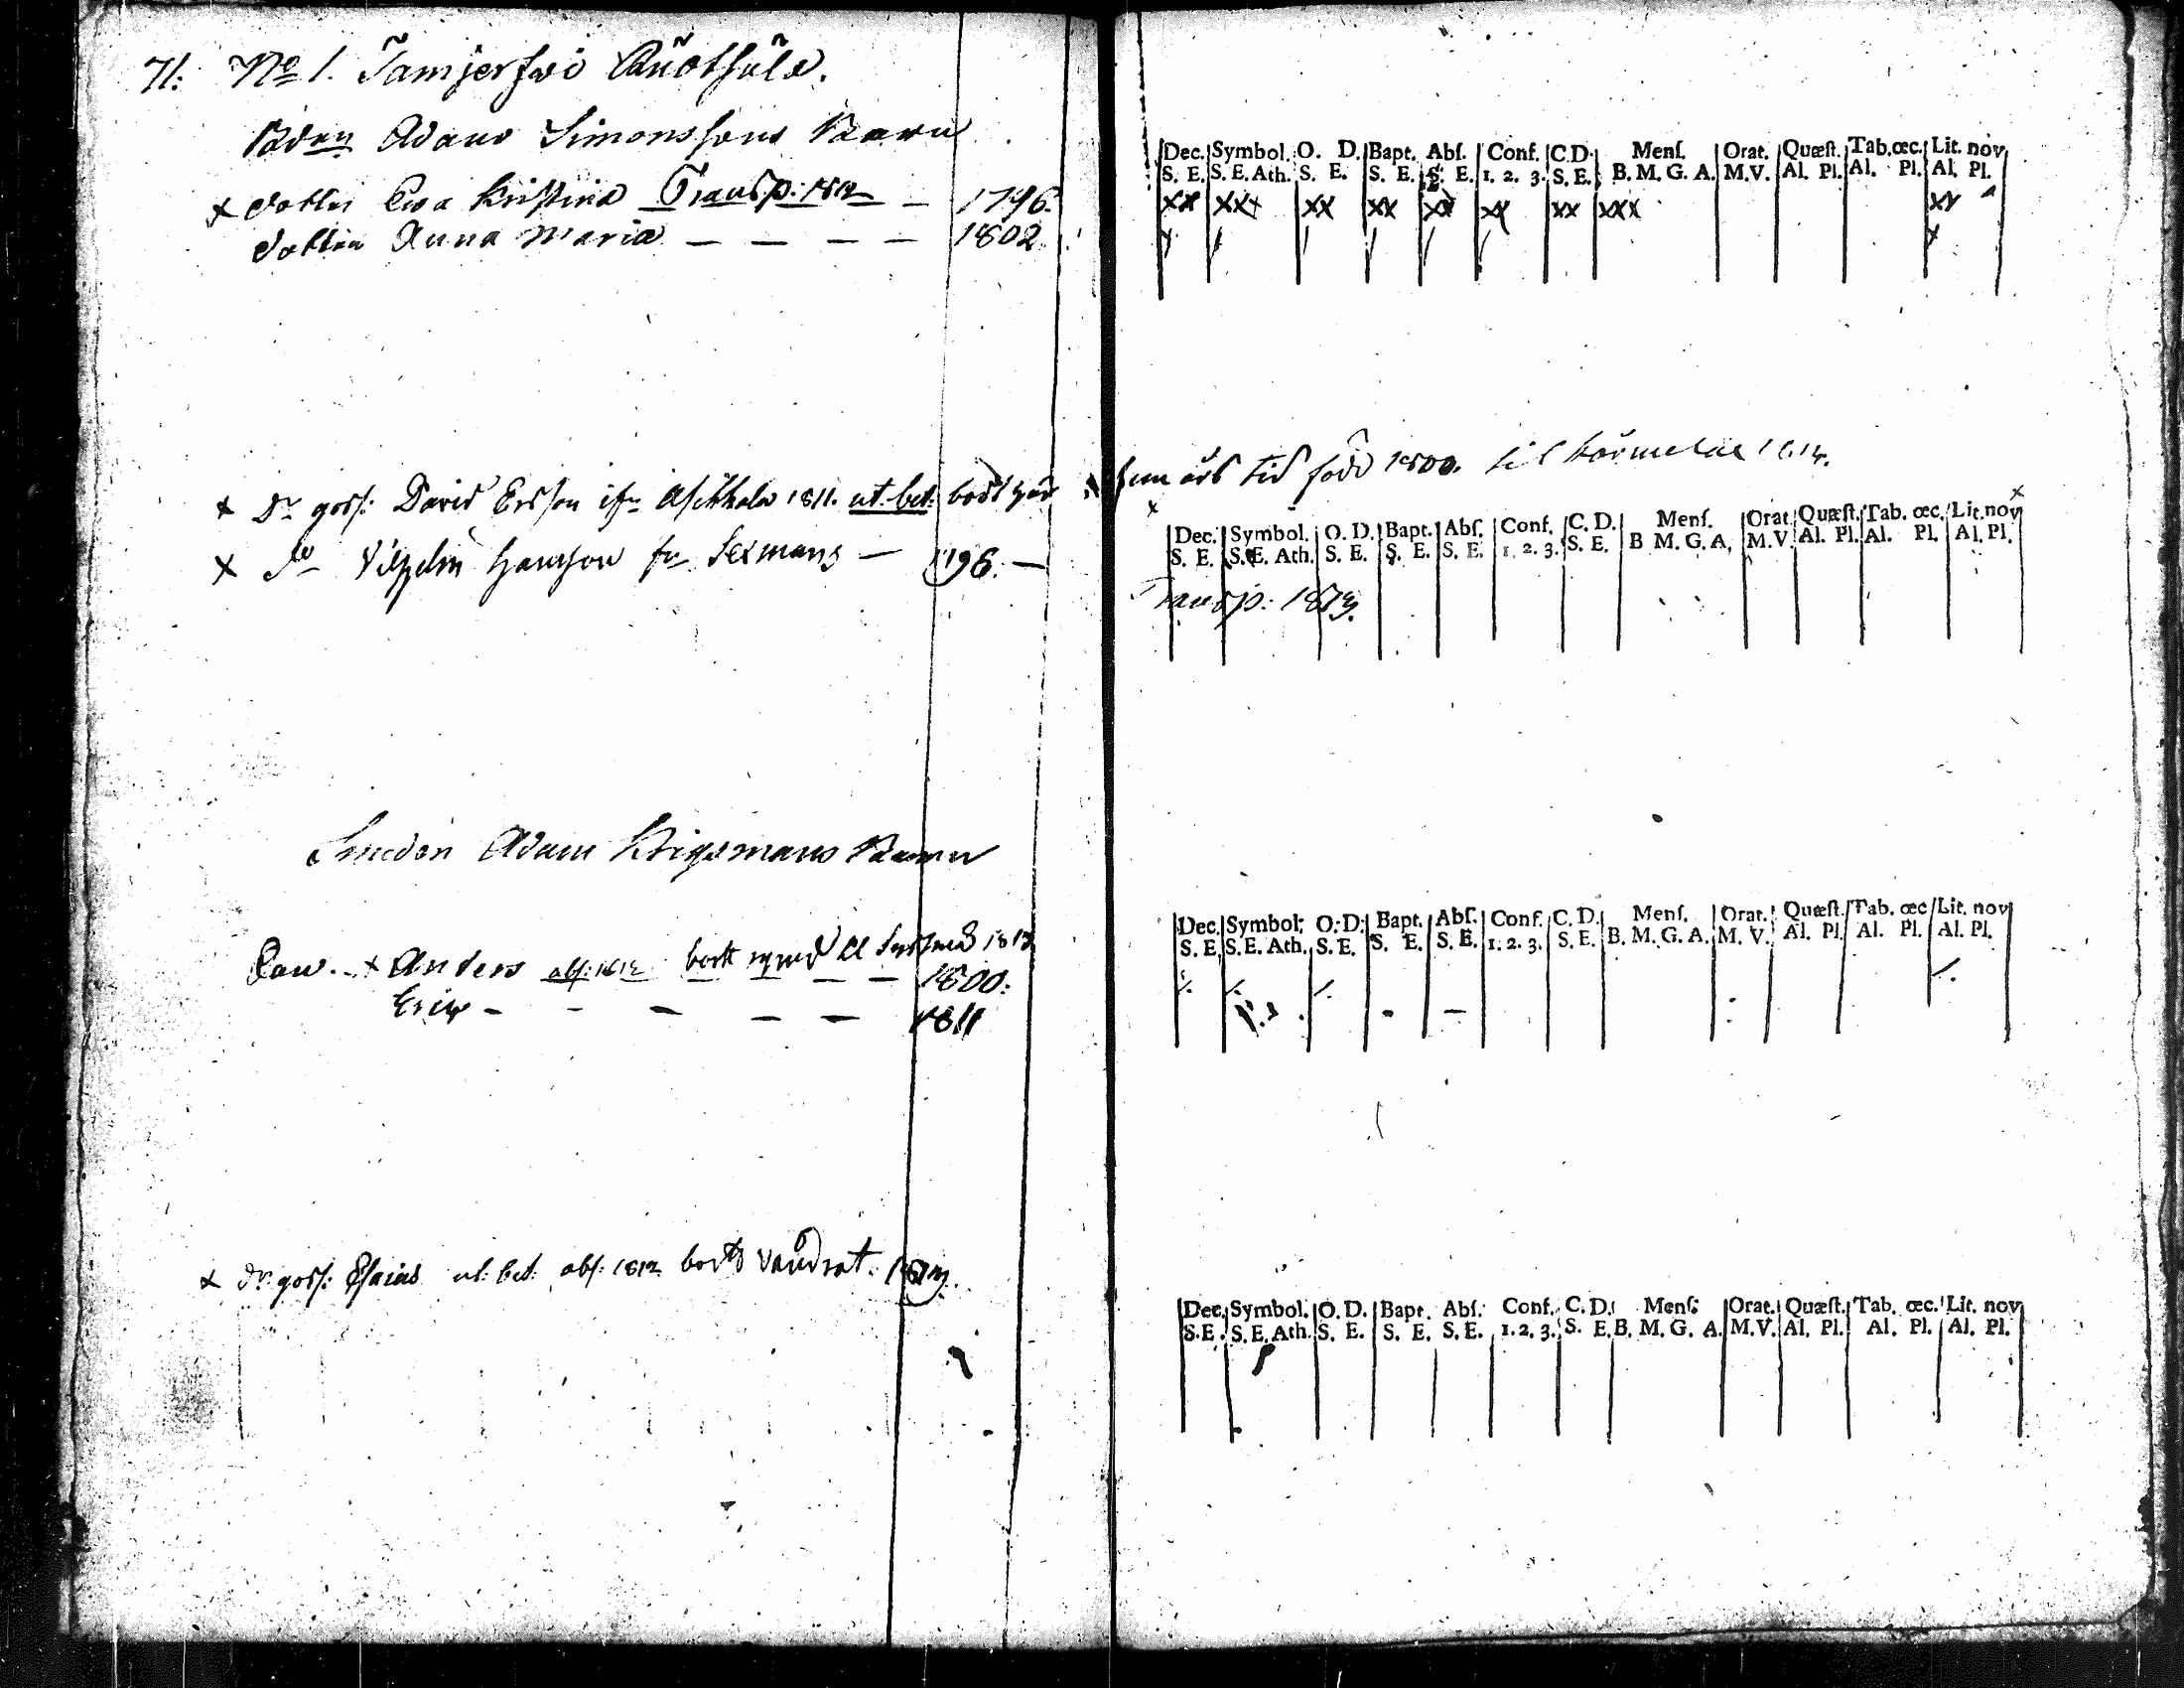 71. No 1. Tamjerfwi Ruotsula.
Bdens Adams Simonssons Barn
x dotter Ewa Kristina Transp: 1812 — 1796.
dotter Anna Maria — — — — 1802.
Dec. Symbol. O. D. Bapt. Abſ. Conf. C.D. Menſ. Orat. Quæſt. Tab. œc. Lit. nov
S. E. S. E. Ath. S. E. S. E. S. E. 1. 2. 3. S. E. B. M. G. A. M.V. Al. Pl. Al. Pl. Al. Pl.
xx xxx xx xx xx xx xx xxx xx
x Dr goss: David Ersson ifr 1811. ut. bet: bodt här
fem års tid född 1800. til 1814.
x Do Vilhelm Hansson fr Sexmans — 1796. —
x x
Dec. Symbol. O. D. Bapt. Abſ. Conf. C. D. Menſ. Orat. Quæſt. Tab. œc. Lit. nov
S. E. S. E. Ath. S. E. S. E. S. E. 1. 2. 3. S. E. B M. G. A. M.V. Al. Pl. Al. Pl. Al. Pl.
Transp: 1813.
Smeden Adam Krigsmans Barn
x Anders abs: 1812 bort rymd til 1813
— — 1800:
Eric — — — — — 1811
Dec. Symbol. O. D. Bapt. Abſ. Conf. C. D. Menſ. Orat. Quæſt. Tab. œc. Lit. nov
S. E. S. E. Ath. S. E. S. E. S. E. 1. 2. 3. S. E. B. M. G. A. M. V. Al. Pl. Al. Pl. Al. Pl.
x dr goss: Esaias ut: bet: abs: 1812 bort vandrat. 1813.
Dec. Symbol. O. D. Bapt. Abſ. Conf. C. D. Menſ. Orat. Quæſt. Tab. œc. Lit. nov
S. E. S. E. Ath. S. E. S. E. S. E. 1. 2. 3. S. E. B. M. G. A. M. V. Al. Pl. Al. Pl. Al. Pl.